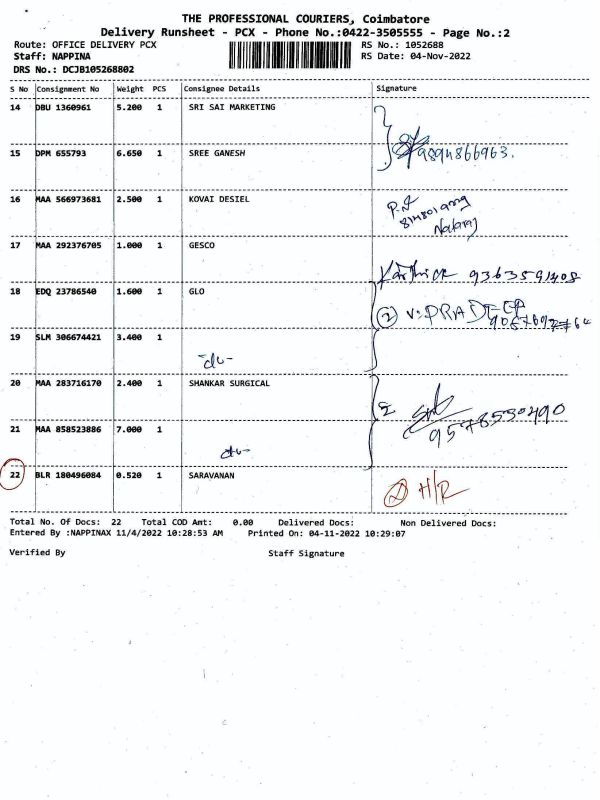 THE PROFESSIONAL COURIERS, Coimbatore
Delivery Runsheet - PCX - Phone No.:0422-3505555 - Page No.:2
Route: OFFICE DELIVERY PCX RS No.: 1052688
Staff: NAPPINA RS Date: 04-Nov-2022
DRS No.: DCJB105268802
S No Consignment No Weight PCS Consignee Details Signature
14 DBU 1360961 5.200 1 SRI SAI MARKETING
15 DPM 655793 6.650 1 SREE GANESH 9894866963.
16 MAA 566973681 2.500 1 KOVAI DESIEL
Nataraj
17 MAA 292376705 1.000 1 GESCO Karthick 9363591408
18 EDQ 23786540 1.600 1 GLO 2 V. PRADEEP
19 SLM 306674421 3.400 1
do-
20 MAA 283716170 2.400 1 SHANKAR SURGICAL 2
9578550490
21 MAA 858523886 7.000 1
do-
22 BLR 180496084 0.520 1 SARAVANAN H/R
Total No. Of Docs: 22 Total COD Amt: 0.00 Delivered Docs: Non Delivered Docs:
Entered By :NAPPINAX 11/4/2022 10:28:53 AM Printed On: 04-11-2022 10:29:07
Verified By Staff Signature